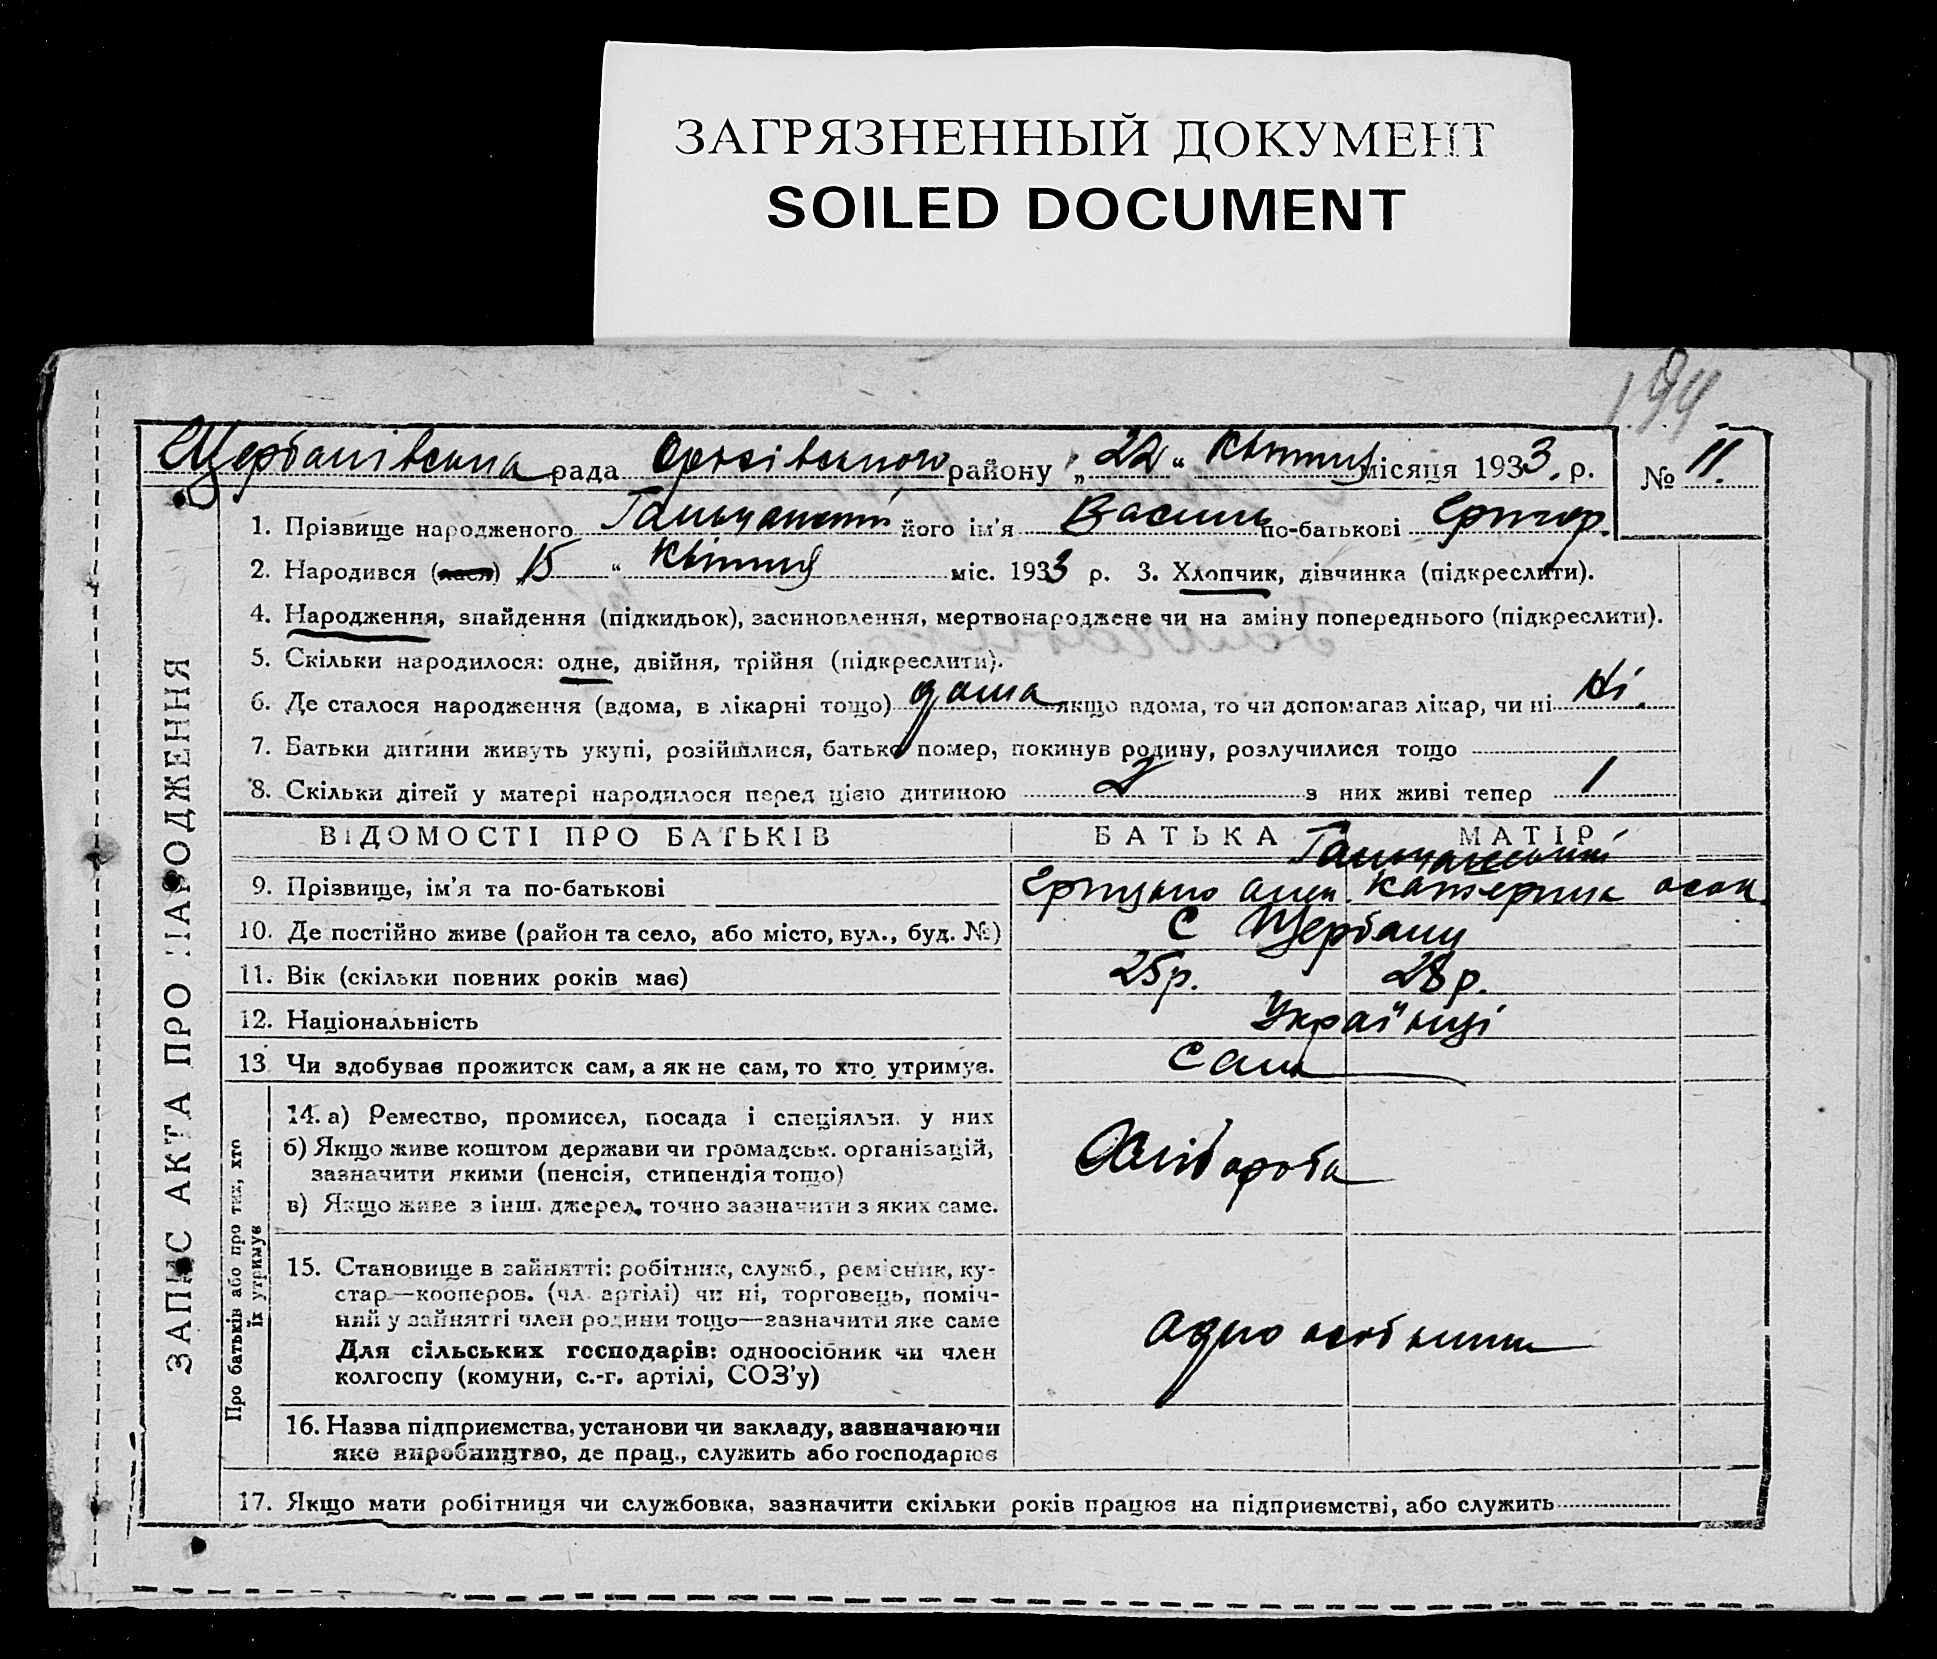 ЗАГРЯЗНЕННЫЙ ДОКУМЕНТ
SOILED DOCUMENT
194
Щербанівська рада району „22“ Квітня місяця 1933. р. № 11.
1. Прізвище народженого його ім'я Василь по-батькові Григор.
2. Народився (лася) „15“ Квітня міс. 1933 р. 3. Хлопчик, дівчинка (підкреслити).
4. Народження, знайдення (підкидьок), засиновлення, мертвонароджене чи на зміну попереднього (підкреслити).
5. Скільки народилося: одне, двійня, трійня (підкреслити).
6. Де сталося народження (вдома, в лікарні тощо) дома якщо вдома, то чи допомагав лікар, чи ні Ні.
7. Батьки дитини живуть укупі, розійшлися, батько помер, покинув родину, розлучилися тощо
8. Скільки дітей у матері народилося перед цією дитиною 2 з них живі тепер 1
ЗАПИС АКТА ПРО НАРОДЖЕННЯ
ВІДОМОСТІ ПРО БАТЬКІВ БАТЬКА МАТІР
9. Прізвище, ім'я та по-батькові Катерина
10. Де постійно живе (район та село, або місто, вул., буд. №) С Щербани
11. Вік (скільки повних років має) 25 р. 28 р.
12. Національність Українці
13. Чи здобуває прожиток сам, а як не сам, то хто утримує. Сам
Про батьків або про тих, хто
їх утримує
14. а) Ремество, промисел, посада і спеціяльн. у них
б) Якщо живе коштом держави чи громадськ. організацій,
зазначити якими (пенсія, стипендія тощо) Хлібороба
в) Якщо живе з інш. джерел, точно зазначити з яких саме.
15. Становище в зайнятті: робітник, служб., ремісник, ку-
стар—кооперов. (чл. артілі) чи ні, торговець, поміч-
ний у зайнятті член родини тощо—зазначити яке саме
Для сільських господарів: одноосібник чи член
колгоспу (комуни, с.-г. артілі, СОЗ'у)
16. Назва підприємства, установи чи закладу, зазначаючи
яке виробництво, де прац., служить або господарює
17. Якщо мати робітниця чи службовка, зазначити скільки років працює на підприємстві, або служить